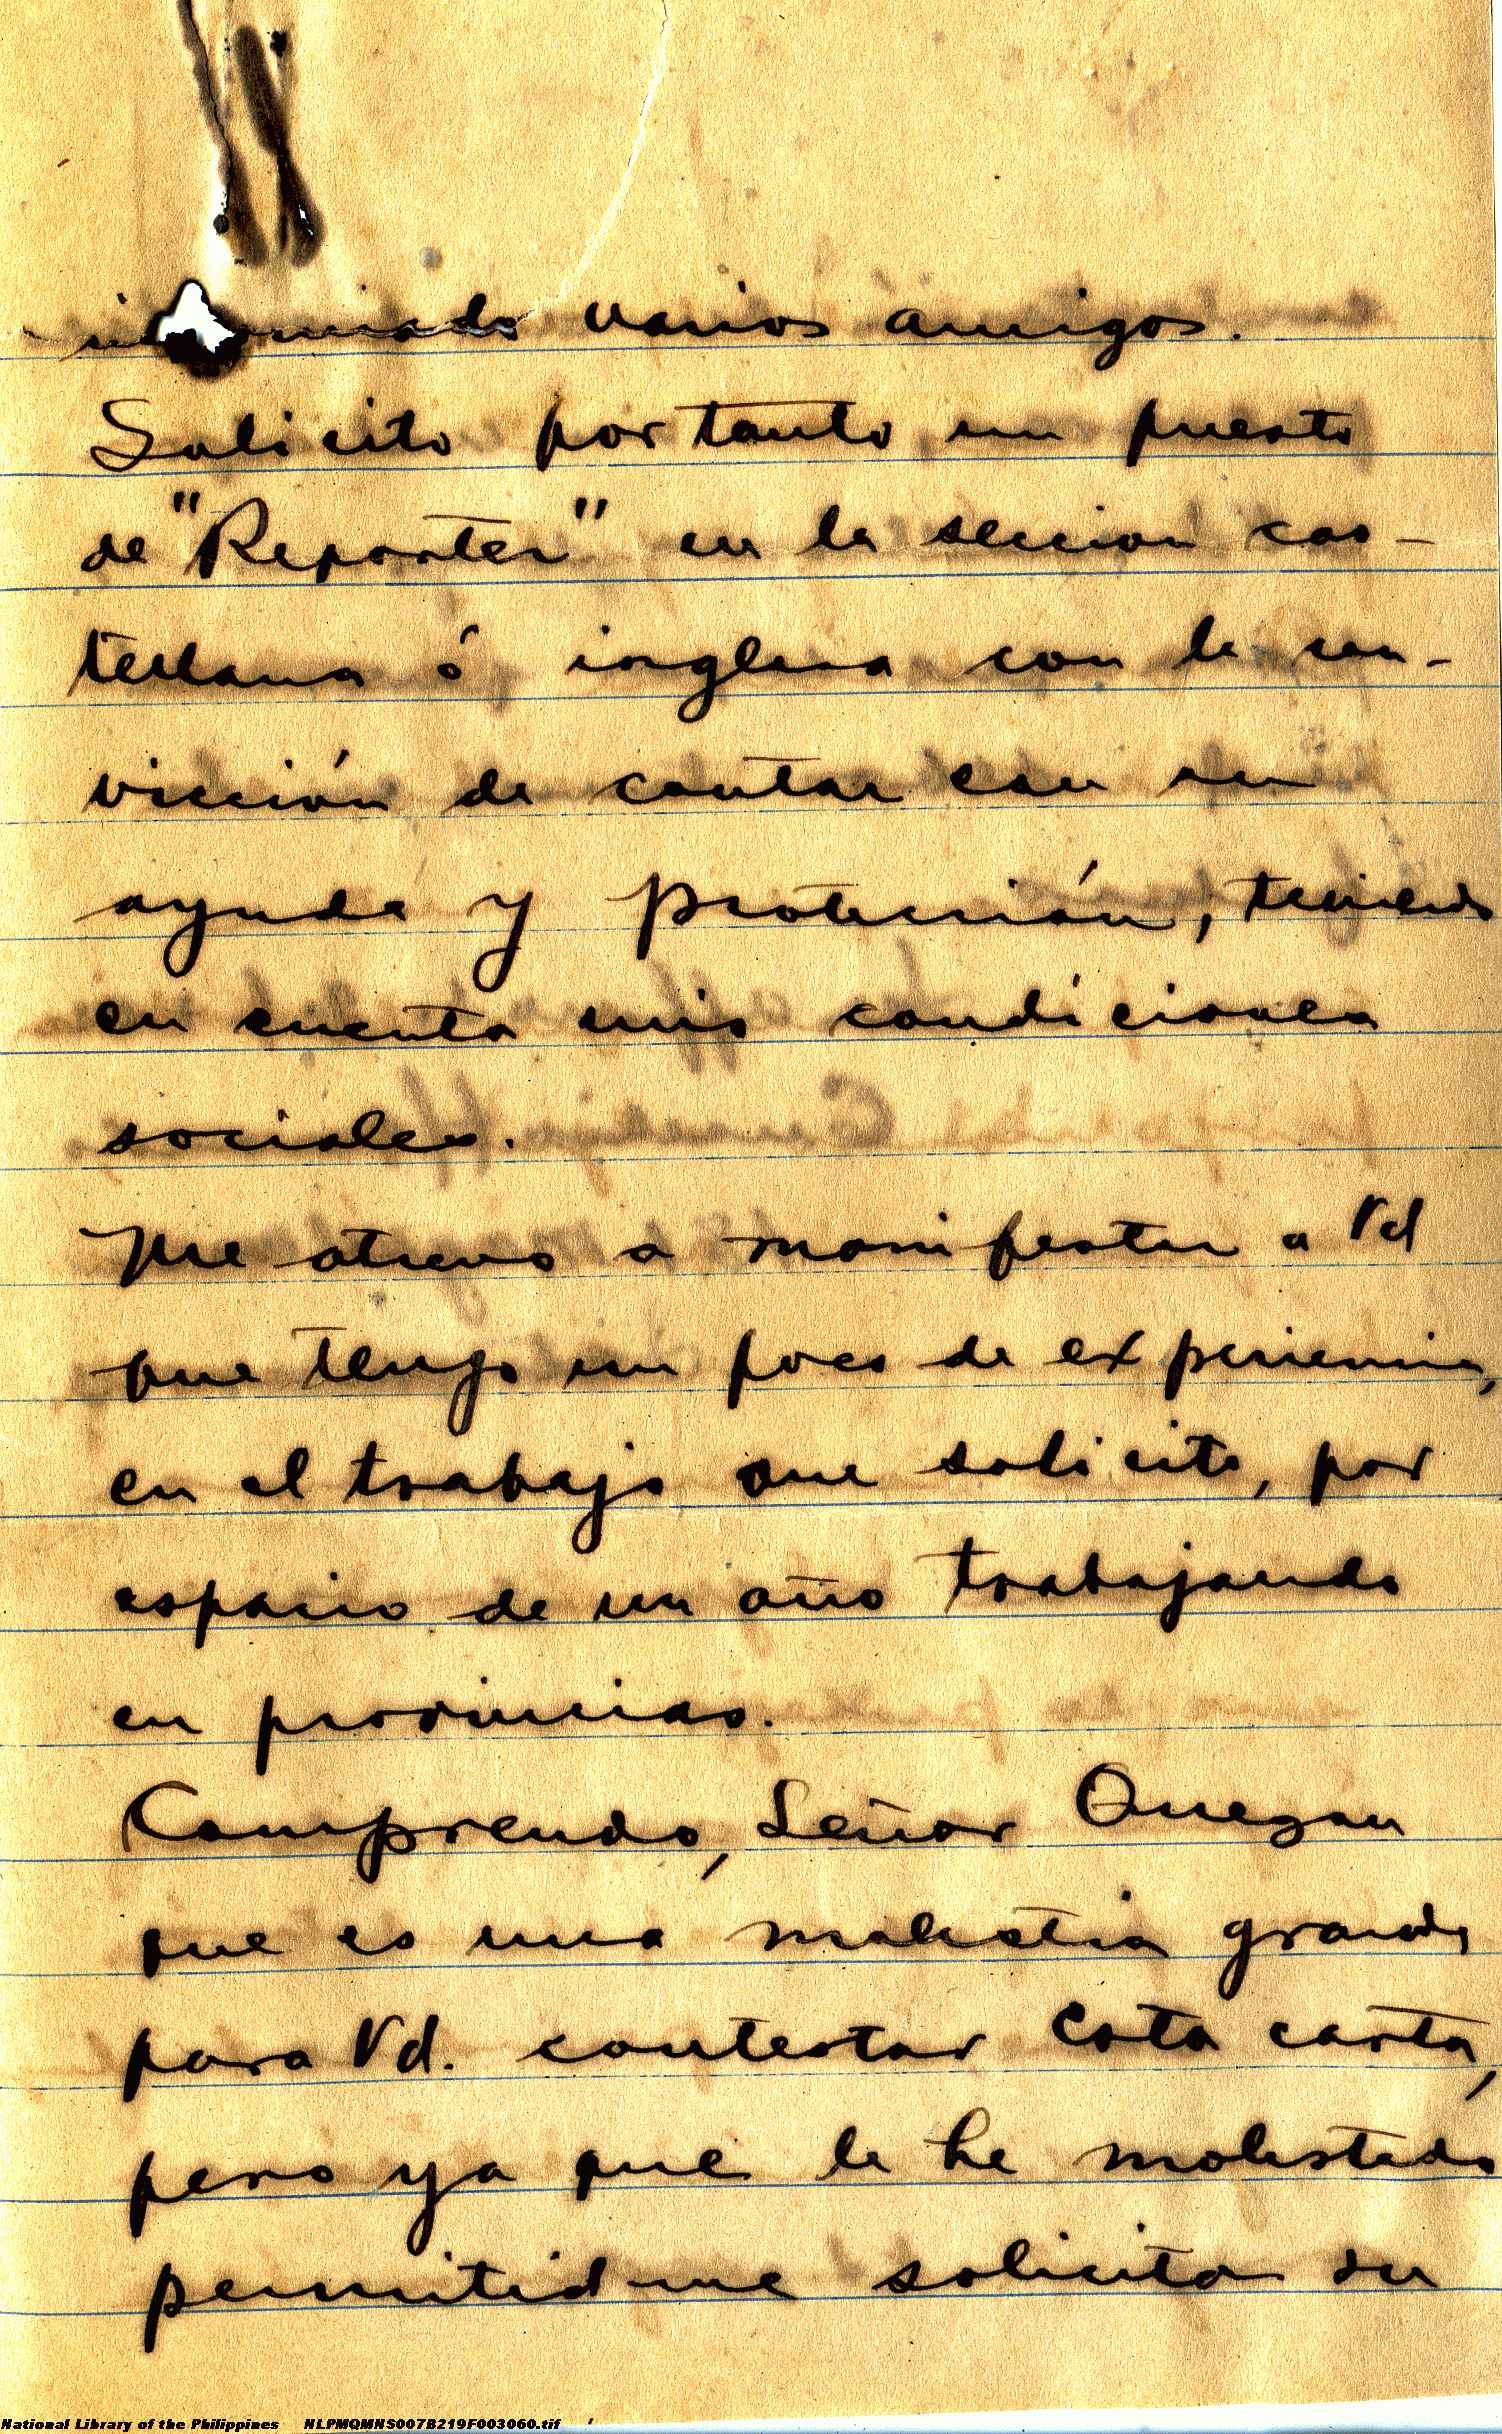 informado varios amigos.
Solicito por tanto un puesto
de "Reporter" en la seccion cas-
tellana ó inglesa con la con-
vicción de contar con su
ayuda y protección, teniendo
en cuenta mis condiciones
sociales.
Me atrevo a manifestar a Vd
que tengo un poco de experiencia,
en el trabajo que solicito, por
espacio de un año trabajando
en provincias.
Comprendo, Señor Quezon
que es una molestia grande
para Vd. contestar esta carta,
pero ya que le he molestado
permitidme solicitar su
National Library of the Philippines NLPMQMNS007B219F003060.tif